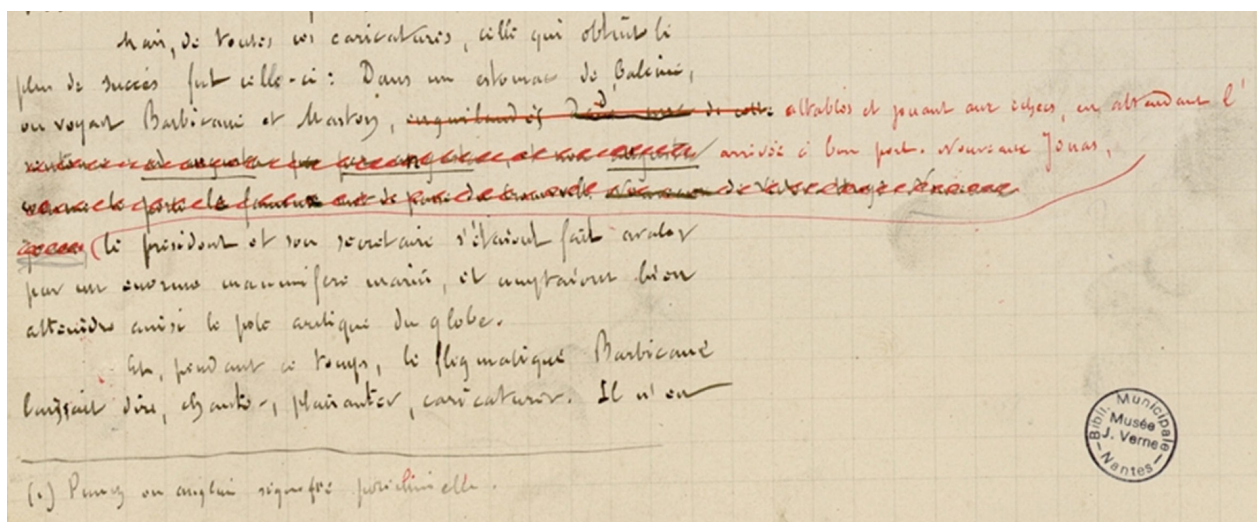 Mais, de toutes ces caricatures, celle qui obtint le
plus de succès fut celle-ci : Dans un estomac de baleine,
on voyait Barbicane et Maston, attablés et jouant aux échecs, en attendant l'
arrivée à bon port. Nouveaux Jonas,
le président et son secrétaire s'étaient fait avaler
par un énorme mammifère marin, et comptaient bien
atteindre ainsi le pôle arctique du globe.
Et, pendant ce temps, le flegmatique Barbicane
laissait dire, chanter, plaisanter, caricaturer. Il n'en
(1) Punch en anglais signifie polichinelle.
Bibl. Municipale
Musée
J. Verne
Nantes